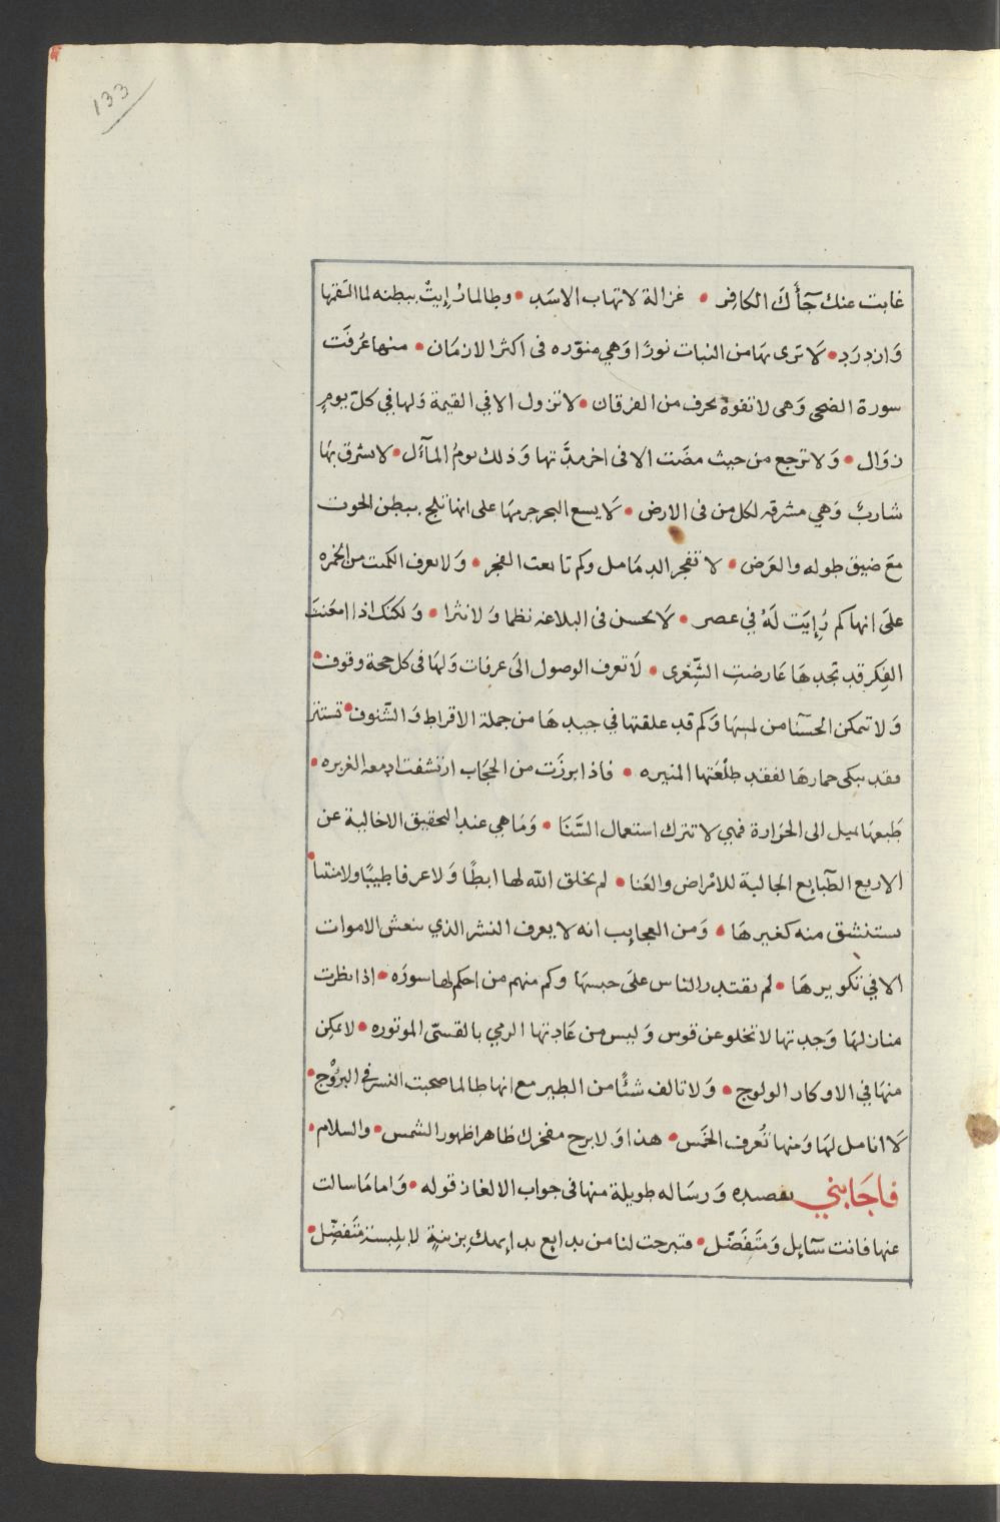 133
غابت عنك جآءك الكافر • غزالة لا تهاب الاسد • وطالما رُإيتْ ببطنه لما التقمها
وَازدرَد • لَا ترى بهَا من النبات نورًا وَهي منوّره فى اكثر الازمَان • منها عُرفَت
سورة الضحى وَهى لا تفوهْ بحرف من الفرقان • لا تزول الا في القيمة وَلها في كلّ يومٍ
زوَال • وَلا ترجع من حيث مضَت الا فى اخر مدَّتها وَذلك يومُ المآل • لا يشرق بهَا
شاربٌ وَهي مشرقه لكل من فى الارض • لَا يسع البحر جرمهَا على انها تلج ببطن الحوت
معَ ضيق طوله والعَرض • لا تفجر الدمَامل وكم تابعت الفجر • وَلا تعرف الكميت من الخمره
علىَ انها كم رُإيَت لَهُ في عصر • لَا يحسن فى البلاغه نظما وَلا نثرا • وَلكنك اذا امعَنتَ
الفِكر قد تجدهَا عَارضتِ الشِّعرى • لَا تعرف الوصول الىَ عرفات وَلهَا فى كل حجة وقوف •
وَلا تمكن الحسنا من لمسهَا وَكم قد علقتها في جيدهَا من جملة الاقراط وَالشّنوف • تستتر
فقد يبكى حمارهَا لفقد طلعَتها المنيره • فاذا برزَت من الحجَاب ارتشفت ادمعه الغزيره •
طَبعهَا يميل الى الحرَارة فهي لا تترك استعمال السَّنَا • وَمَا هي عند التحقيق الا خالية عن
الاربع الطّبايع الجالبة للامراض والعَنا • لم يخلق الله لها ابطًا وَلا عرفا طيبًا ولا منتنا •
يستنشق منه كغيرهَا • وَمن العجايب انه لا يعرف النشر الذي ينعش الاموات
الا في تكويرهَا • لم يقتدر الناس علىَ حبسهَا وكم منهم من احكم لها سورَه • اذا نظرت
منازلهَا وَجدتها لا تخلو عن قوس وَليس من عَادتها الرمي بالقسىّ الموتوره • لا يمكن
منهَا في الاوكار الولوج • وَلا تالف شئًا من الطير مع انها طالما صحبت النسر في البرُوْج •
لَا انامل لهَا وَمنها تُعرف الخمَس • هذا وَلا برح مفخرك ظاهرا ظهور الشمس • والسلام •
فاجَابني بقصيده وَرسَاله طويلة منها فى جواب الالغاز قوله • وَاما مَا سالت
عنها فانت سَآيل وَمتَفَضّل • فتبرجت لنا من بدايع بزينةٍ لا بلبسة متَفضّل •